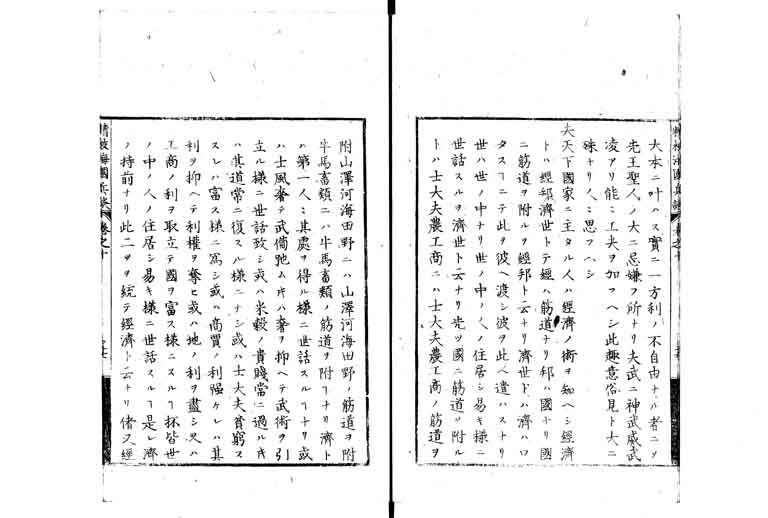 大本ニ叶ハス實ニ一方利ノ不自由ナル者ニソ
先王聖人ノ大ニ忌嫌フ所ナリ夫武ニ神武威武
凌アリ能ニ工夫ヲ加フヘシ此趣意俗見ト大ニ
殊ナリ人ニ思フヘシ
夫天下國家ニ主タル人ハ經濟ノ術ヲ知ヘシ經濟
トハ經邦濟世トテ經ハ筋道ナリ邦ハ國ナリ國
ニ筋道ヲ附ルヲ經邦ト云ナリ濟世トハ濟ハワ
タスヿニテ此ヲ彼ヘ渡シ彼ヲ此ヘ遣ハスナリ
世ハ世ノ中ナリ世ノ中ノ人ノ住居シ易キ樣ニ
世話スルヲ濟世ト云ナリ先ツ國ニ筋道ヲ附ル
トハ士大夫農工商ニハ士大夫農工商ノ筋道ヲ
附山澤河海田野ニハ山澤河海田野ノ筋道ヲ附
牛馬畜類ニハ牛馬畜類ノ筋道ヲ附ヿナリ濟ト
ハ第一人ニ其處ヲ得ル樣ニ世話スルヿナリ或
ハ士風奢テ武備弛ムキハ奢ヲ抑ヘテ武術ヲ引
立ル樣ニ世話致シ或ハ米穀ノ貴賤常ニ過ルキ
ハ其道常ニ復スル樣ニナシ或ハ士大夫貧窮ス
スレハ富ス樣ニ寫シ或ハ商賈ノ利强ケレハ其
利ヲ抑ヘテ利權ヲ奪ヒ或ハ地ノ利ヲ盡シ又ハ
工商ノ利ヲ取立テ國ヲ富ス樣ニスルヿ抔皆世
ノ中ノ人ノ住居シ易キ樣ニ世話スルヿ是レ濟
ノ持前ナリ此二ツヲ統テ經濟ト云ナリ偖又經
精校海國兵談 卷之十